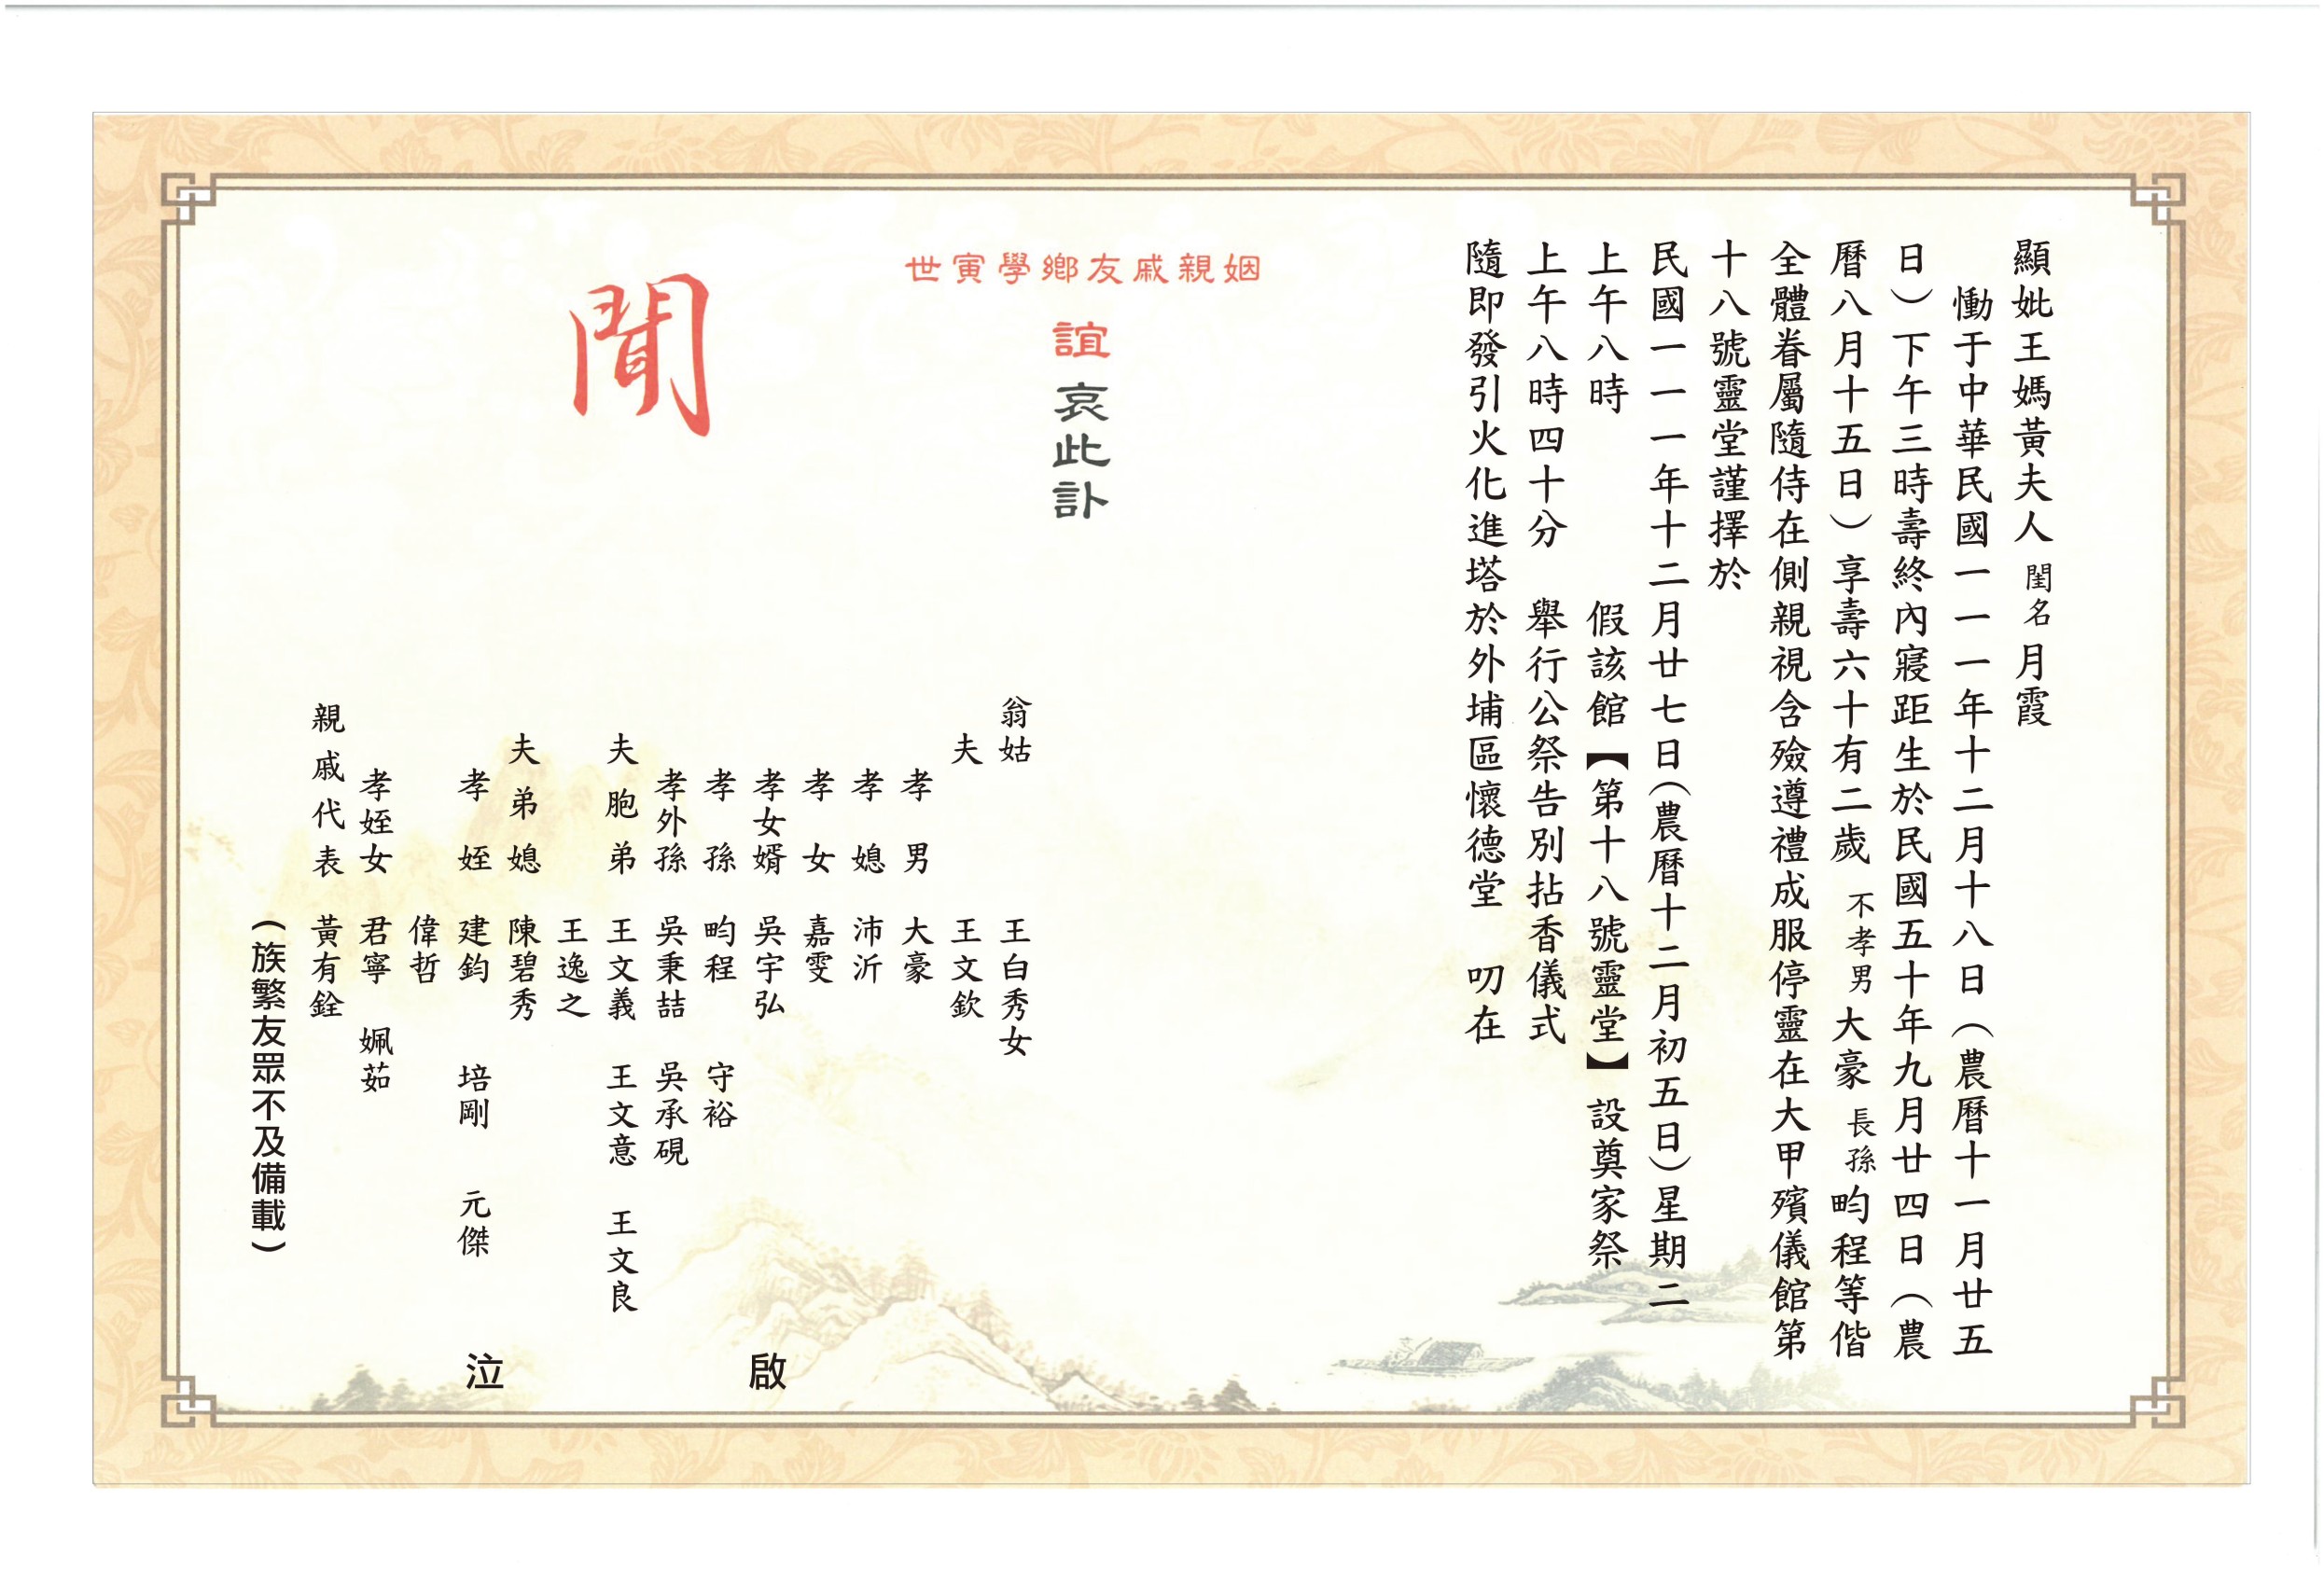 顯妣王媽黃夫人閨名月霞
慟于中華民國一一一年十二月十八日（農曆十一月廿五
日）下午三時壽終內寢距生於民國五十年九月廿四日（農
曆八月十五日）享壽六十有二歲不孝男大豪長孫畇程等偕
全體眷屬隨侍在側親視含殮遵禮成服停靈在大甲殯儀館第
十八號靈堂謹擇於
民國一一一年十二月廿七日（農曆十二月初五日）星期二
上午八時　假該館【第十八號靈堂】設奠家祭
上午八時四十分　舉行公祭告別拈香儀式
隨即發引火化進塔於外埔區懷德堂　叨在
世寅學鄉友戚親姻
誼哀此訃
聞
翁姑　王白秀女
夫　王文欽
孝男　大豪
孝媳　沛沂
孝女　嘉雯
孝女婿　吳宇弘
孝孫　畇程　守裕
孝外孫　吳秉喆　吳承硯
夫胞弟　王文義　王文意　王文良
王逸之
夫弟媳　陳碧秀
孝姪　建鈞　培剛　元傑
偉哲
孝姪女　君寧　姵茹
親戚代表　黃有銓
（族繁友眾不及備載）
泣　啟